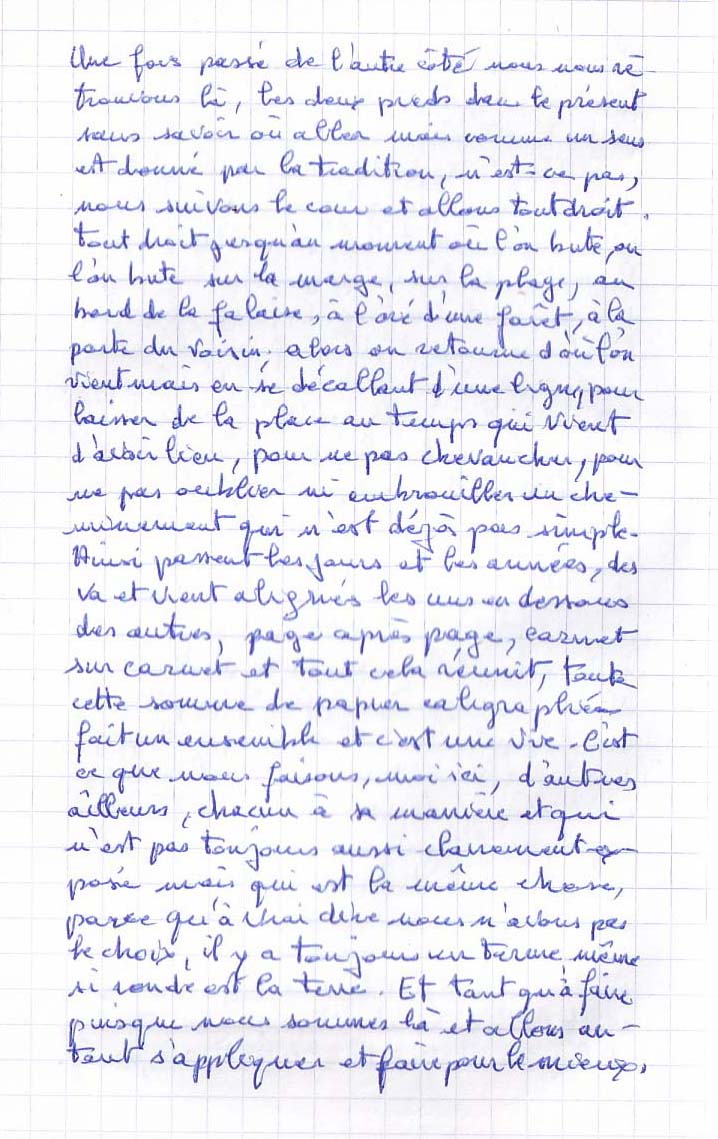 Une fois passé de l'autre côté nous nous re-
trouvons là, les deux pieds dans le présent
sans savoir où aller mais comme un sens
est donné par la tradition, n'est-ce pas,
nous suivons le cour et allons tout droit.
Tout droit jusqu'au moment où l'on bute, ou
l'on bute sur la marge, sur la plage, au
bord de la falaise, à l'oré d'une forêt, à la
porte du voisin. alors on retourne d'où l'on
vient mais en se décallant d'une ligne, pour
laisser de la place au temps qui vient
d'avoir lieu, pour ne pas chevaucher, pour
ne pas oublier ni embrouiller un che-
minement qui n'est déjà pas simple.
Ainsi passent les jours et les années, des
va et vient alignés les uns en dessous
des autres, page après page, carnet
sur carnet et tout cela réunit, toute
cette somme de papier caligraphiée
fait un ensemble et c'est une vie. C'est
ce que nous faisons, moi ici, d'autres
ailleurs, chacun à sa manière et qui
n'est pas toujours aussi clairement ex-
posé mais qui est la même chose,
parce qu'à vrai dire nous n'avons pas
le choix, il y a toujours un terme même
si ronde est la terre. Et tant qu'à faire
puisque nous sommes là et allons au-
tant s'appliquer et faire pour le mieux.